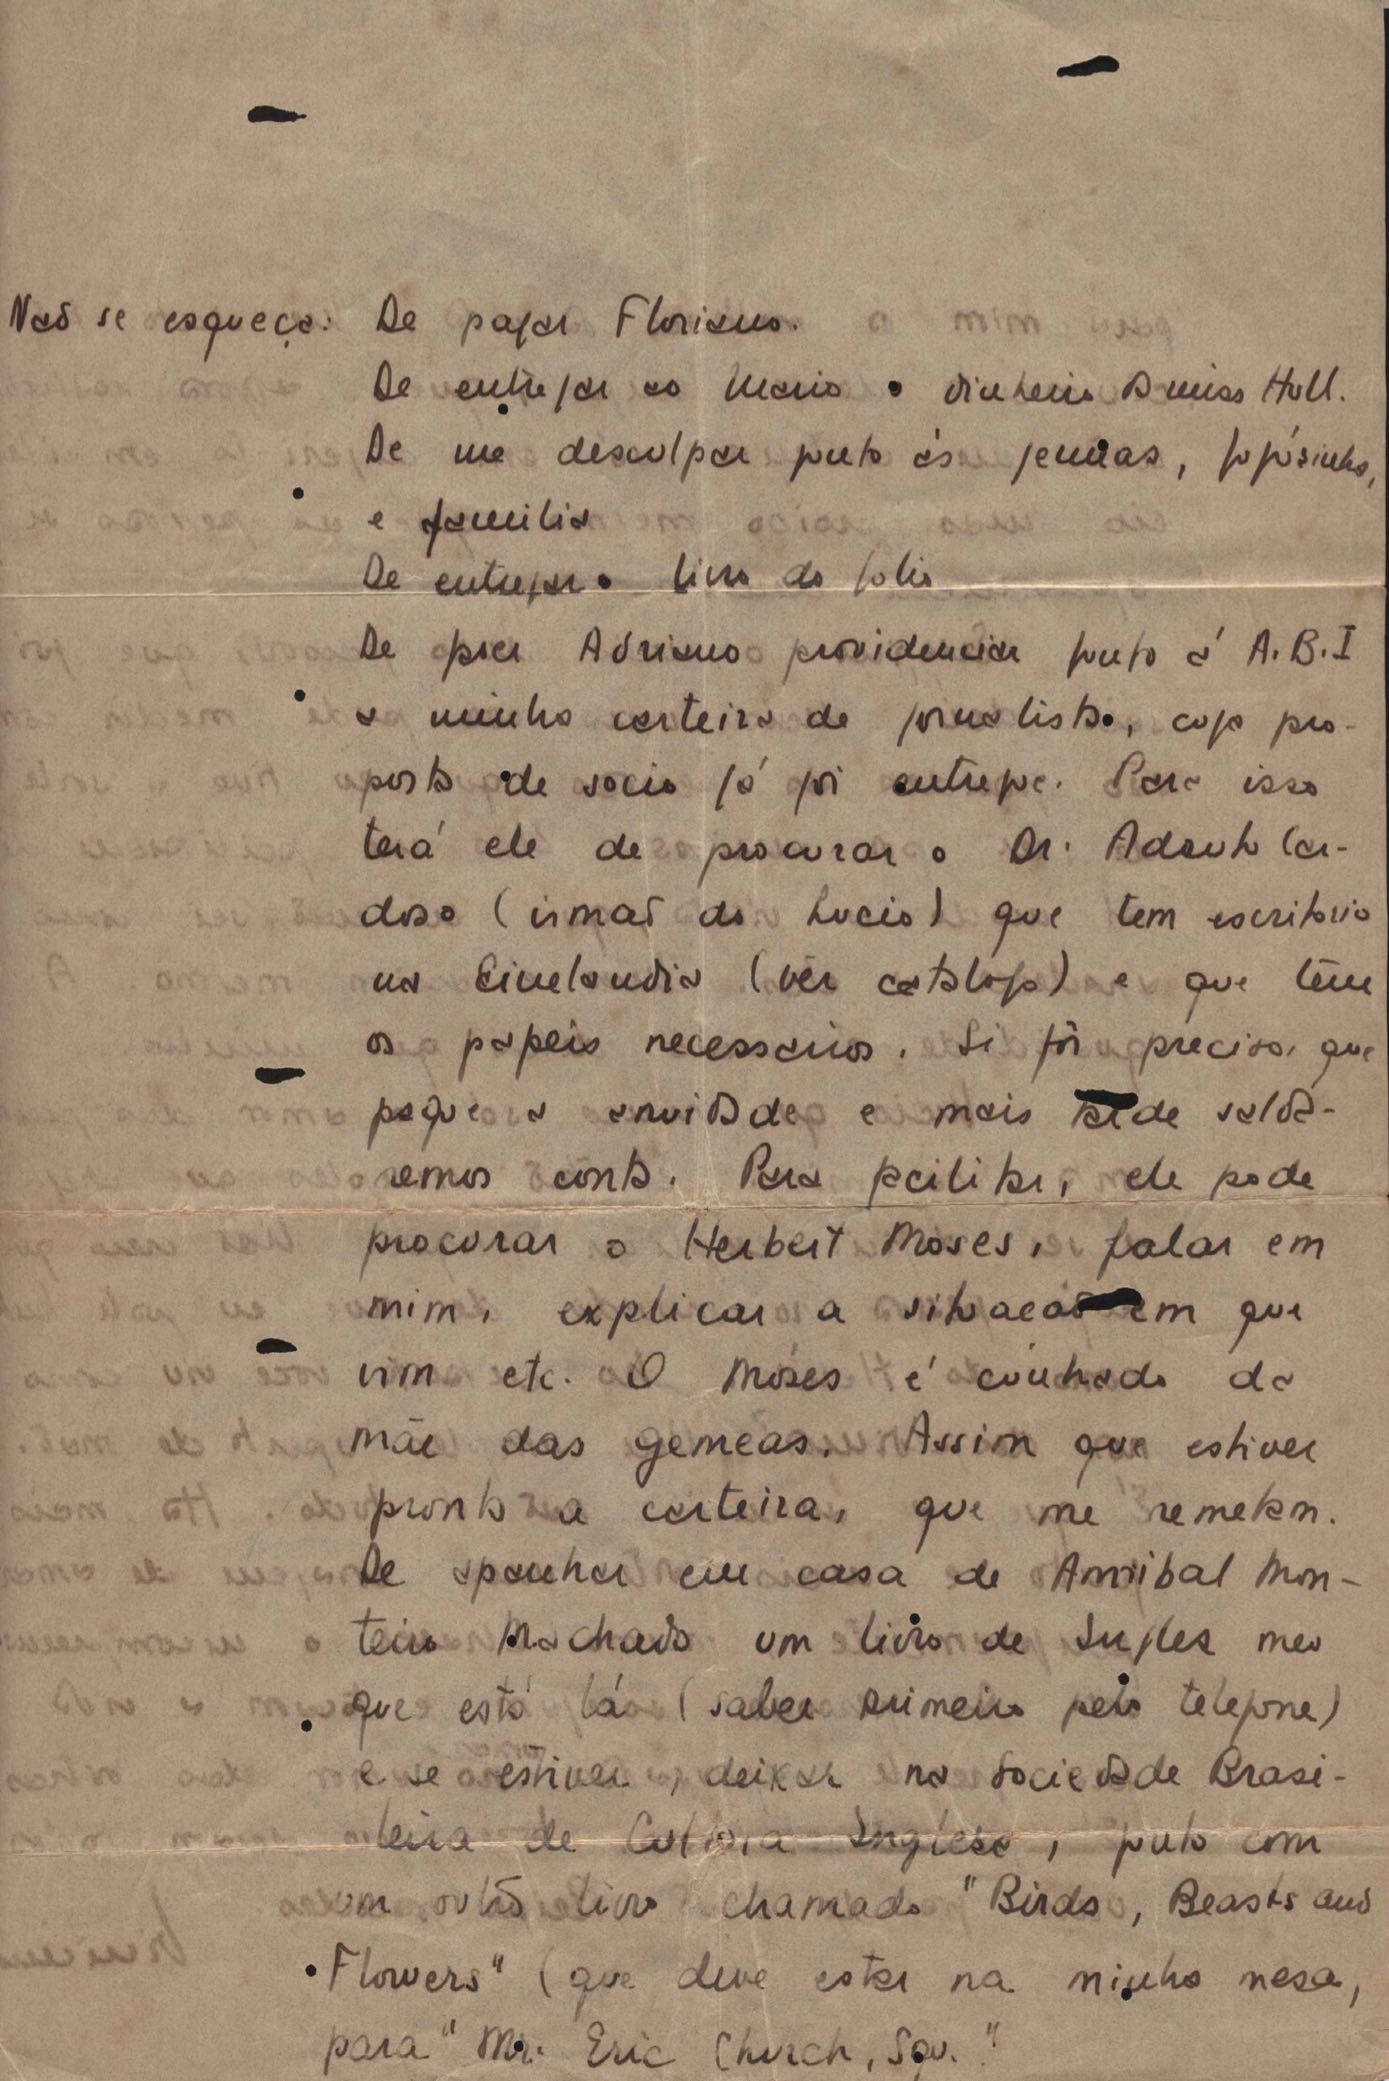 Naõ se esqueça: De pagar Floriano.
De entregar ao Mario o dinheiro Dmiss Hull.
De me desculpar junto ás gemeas,
e familia
De entregar o livro do Julio
De fazer Adriano providenciar junto á A.B.I
a minha carteira de jornalista, cuja pro-
posta de socio já foi entregue. Para isso
terá ele de procurar o Dr. Adauto Car-
doso (irmaõ do Lucio) que tem escritorio
na Cinelandia (vêr catalogo) e que têm
os papeis necessarios. Si fôr preciso, que
pague a anuidade e mais tarde salda-
remos conta. Para facilitar, ele pode
procurar o Herbert Moses, falar em
mim, explicar a situacaõ em que
vim etc. O Moses é cunhado da
mãe das gemeas. Assim que estiver
pronta a carteira, que me remetam.
De apanhar em casa de Annibal Mon-
teiro Machado um livro de Inglez meu
que está lá (saber primeiro pelo telefone)
e se estiver, deixar na Sociedade Brasi-
leira de Cultura Inglesa, junto com
um outro livro chamado "Birds, Beasts and
Flowers" (que deve estar na minha mesa,
para "Mr. Eric Church, Sqv."